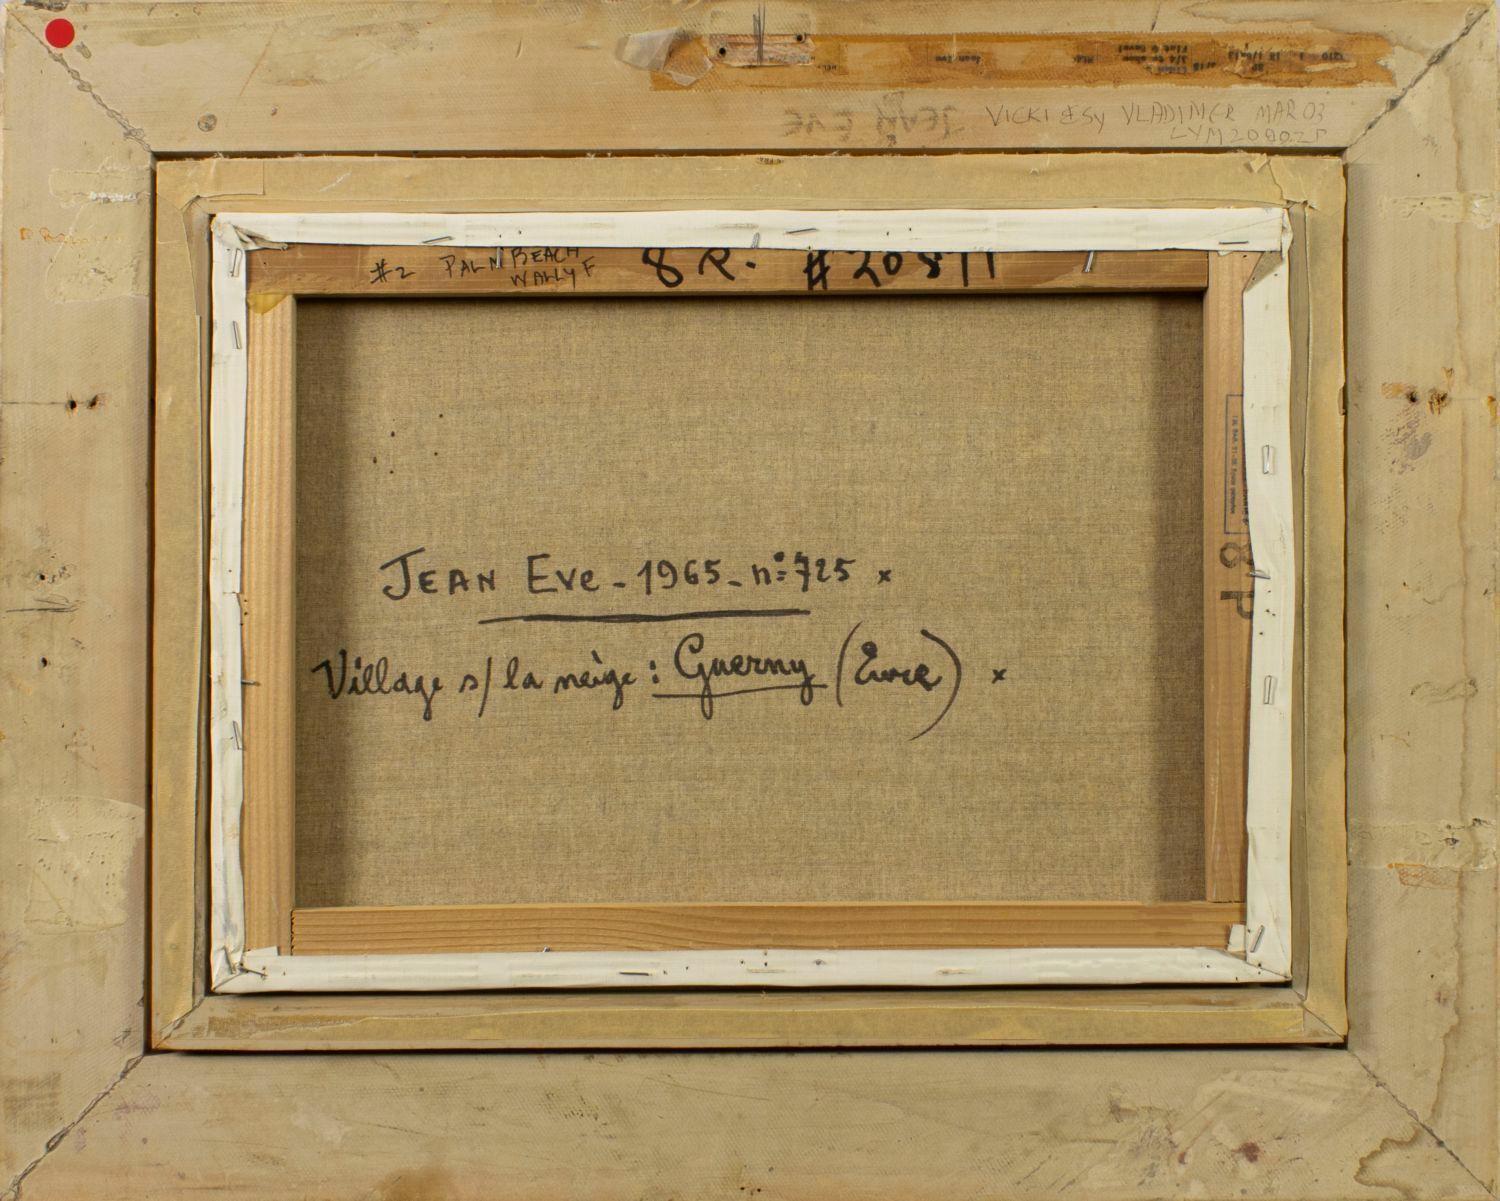 JEAN EVE
VICKI & SY VLADIMER MAR 03
#2 PALM BEACH
WALLY F
8 R. #20811
8 P
JEAN EVE - 1965 - n° 725 x
Village s/ la neige : Guerny (Eure) x